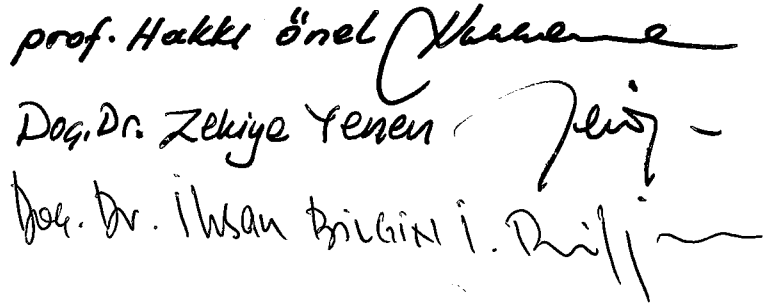 prof. Hakkı önel
Doç. Dr. Zekiye Yenen
Doç. Dr. İhsan BİLGİN İ.